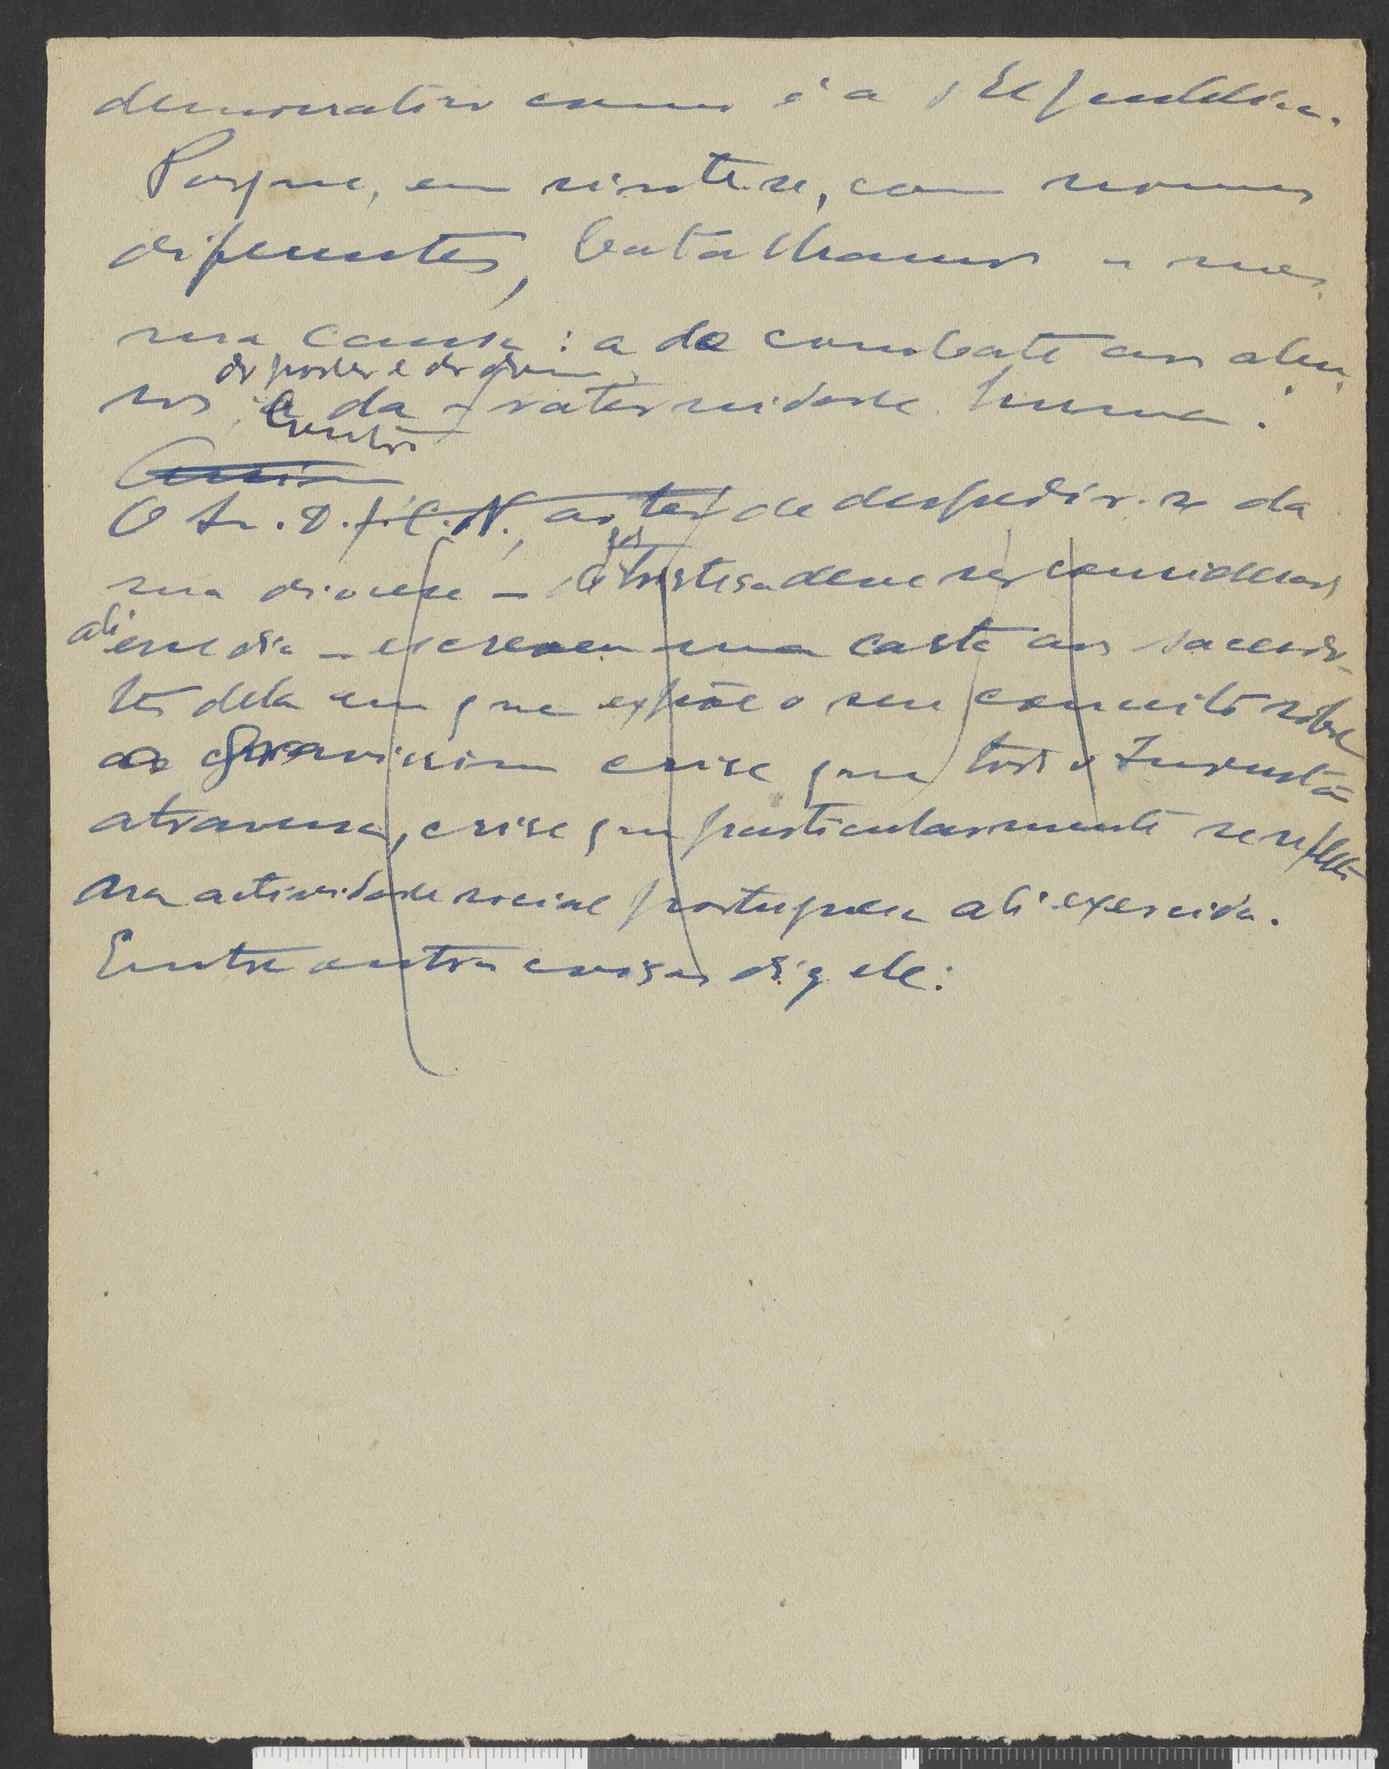 democratico como é a Republica.
Porque, em sintese, com nomes
diferentes, batalhamos a mes-
ma causa: a do combate aos abu-
do poder e do
sos e da fraternidade humana.
O Sr. D. J. C. N., antes de despedir-se da
sua diocese – bispo deve ser considerado
até esse dia – escreveu uma carta aos sacerdo-
tes dela em que expõe o seu conceito sobre
a gravissima crise que todo o
atravessa, crise que particularmente se reflete
na actividade social portuguesa ali exercida.
Entre outras coisas diz ele: